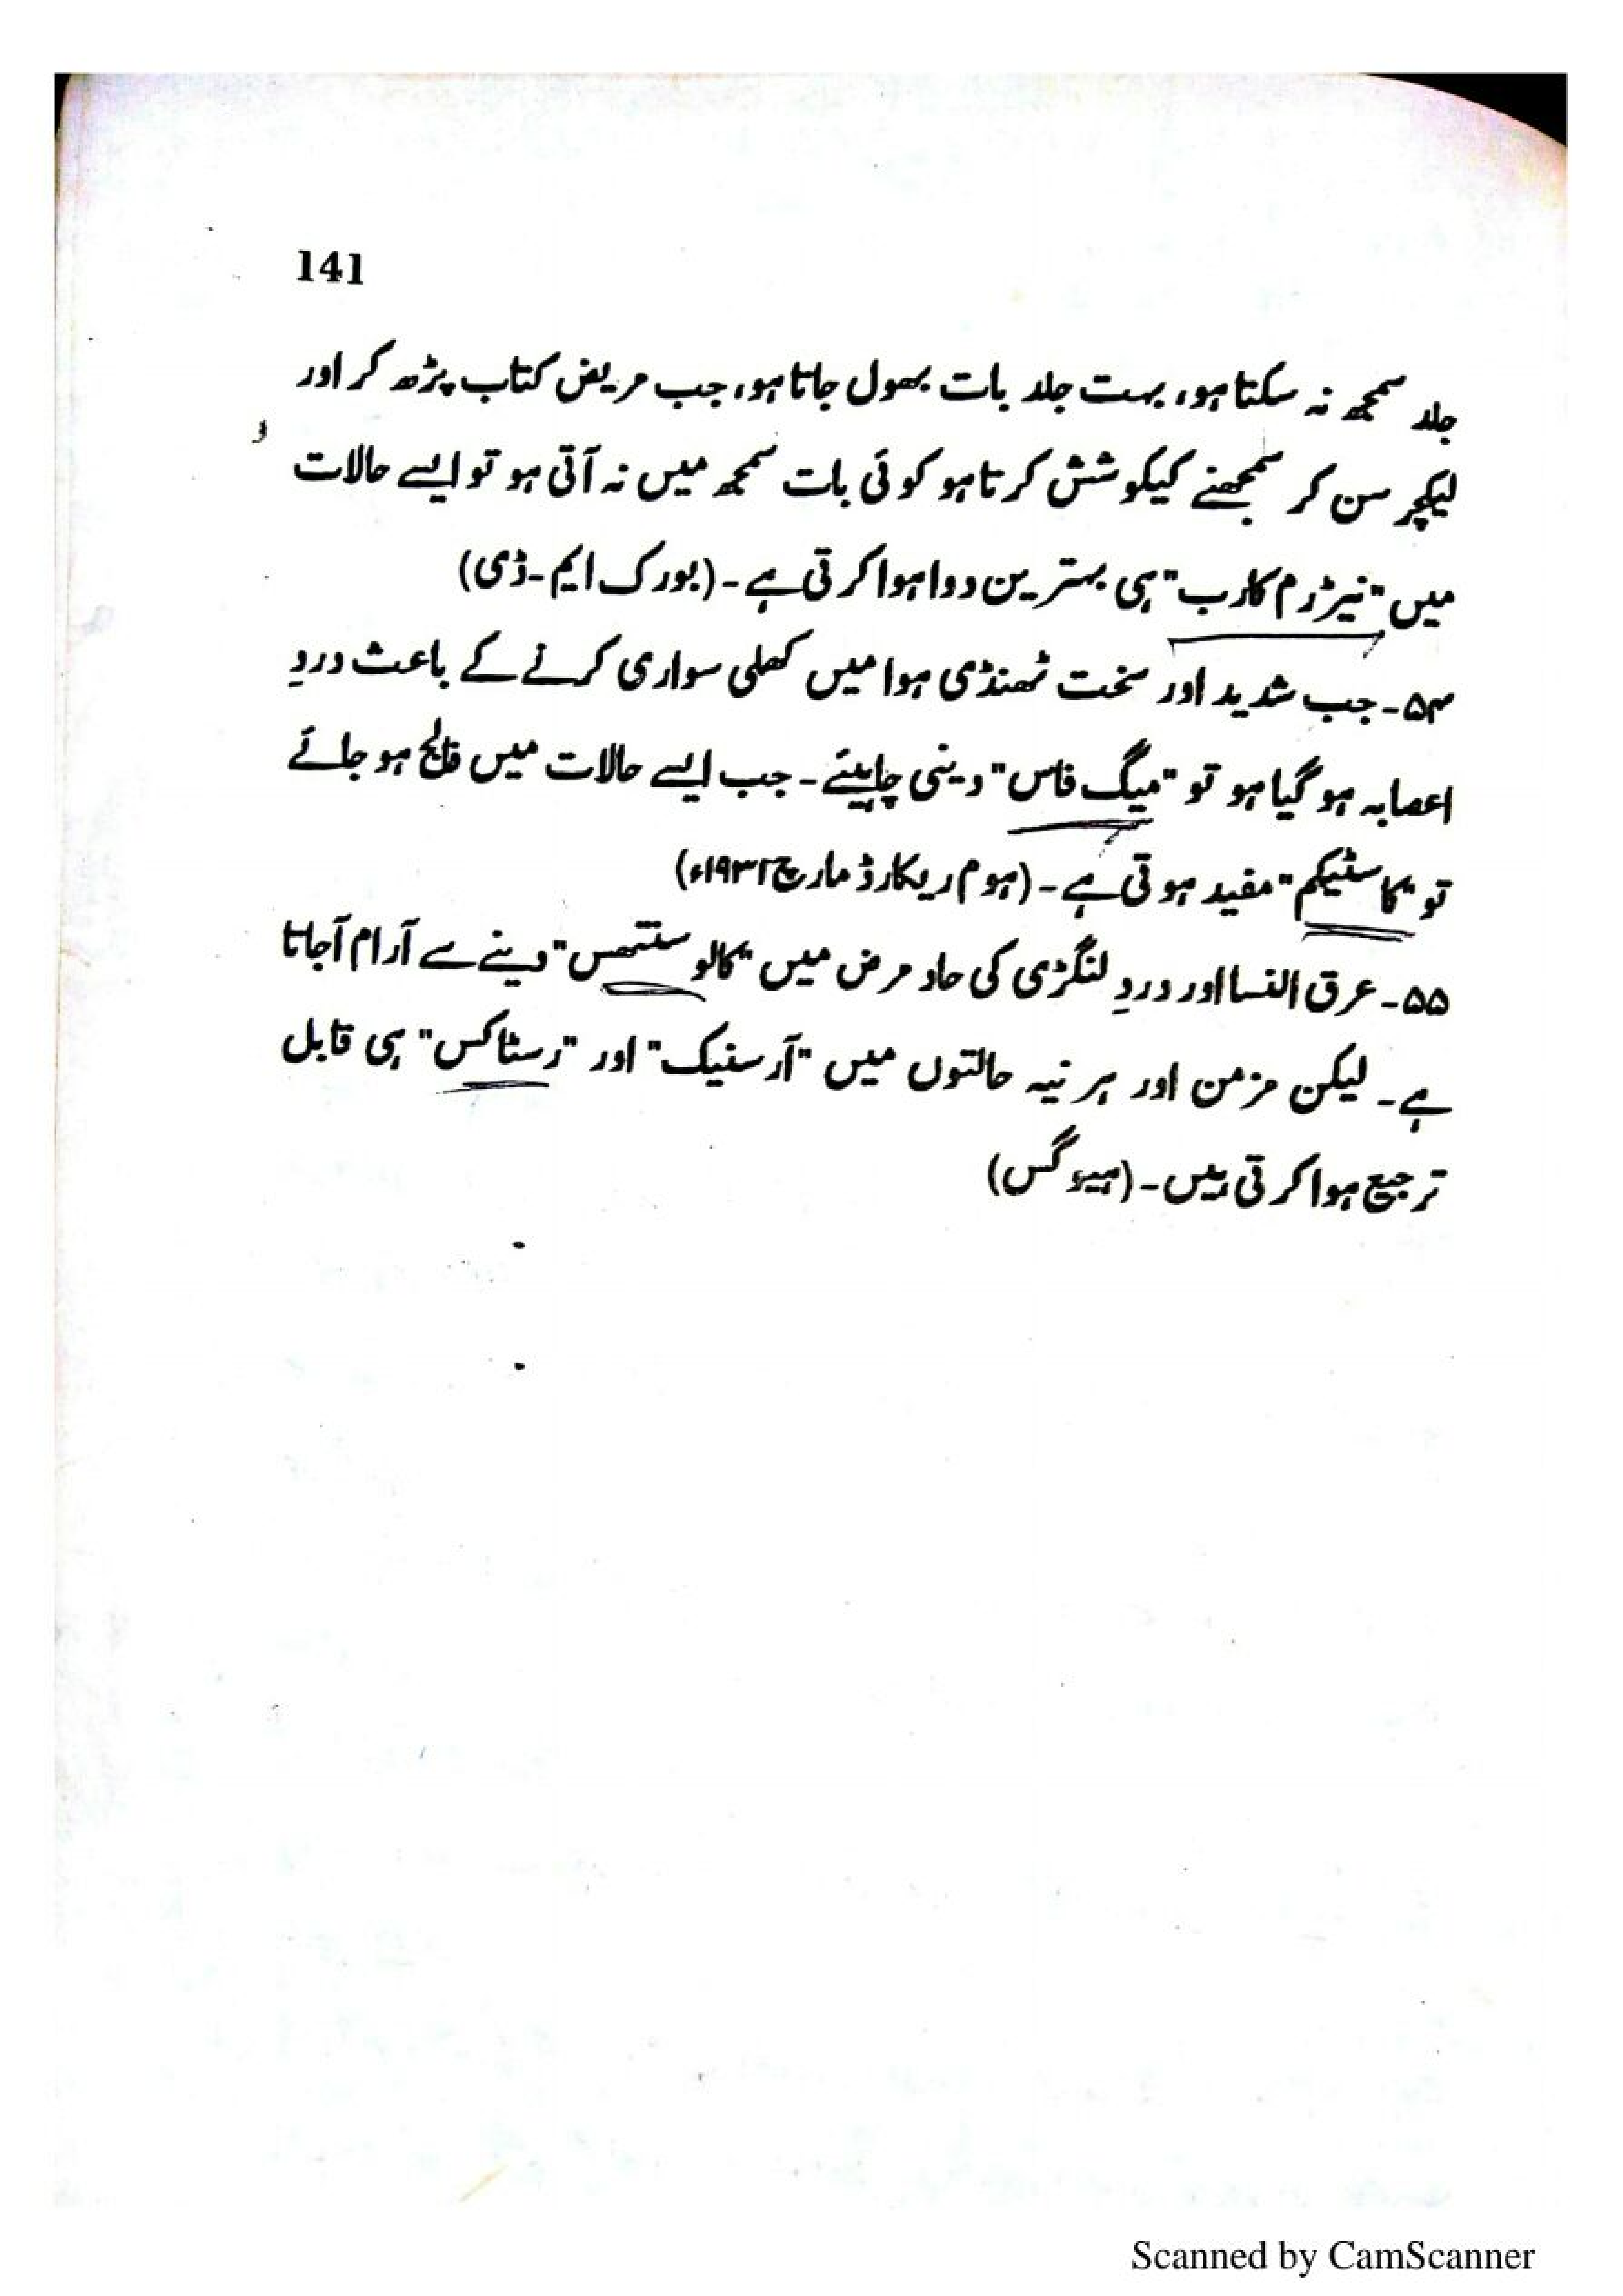 141
جلد سمجھ نہ سکتا ہو، بہت جلد بات بھول جاتا ہو، جب مریض کتاب پڑھ کر اور
لیکچر سن کر سمجھنے کیکوشش کرتا ہو کوئی بات سمجھ میں نہ آتی ہو تو ایسے حالات
میں "نیٹرم کارب" ہی بہترین دوا ہوا کرتی ہے۔ (بورک ایم۔ڈی)
۵۴۔ جب شدید اور سخت ٹھنڈی ہوا میں کھلی سواری کرنے کے باعث دردِ
اعصابہ ہو گیا ہو تو "میگ فاس" دینی چاہیئے۔ جب ایسے حالات میں فالج ہو جائے
تو "کاسٹیکم" مفید ہوتی ہے۔ (ہوم ریکارڈ مارچ ۱۹۳۲ء)
۵۵۔ عرق النسا اور دردِ لنگڑی کی حاد مرض میں "کالوسنتھس" دینے سے آرام آجاتا
ہے۔ لیکن مزمن اور ہرنیہ حالتوں میں "آرسنیک" اور "رسٹاکس" ہی قابل
ترجیع ہوا کرتی ہیں۔ (ہیوگس)
Scanned by CamScanner